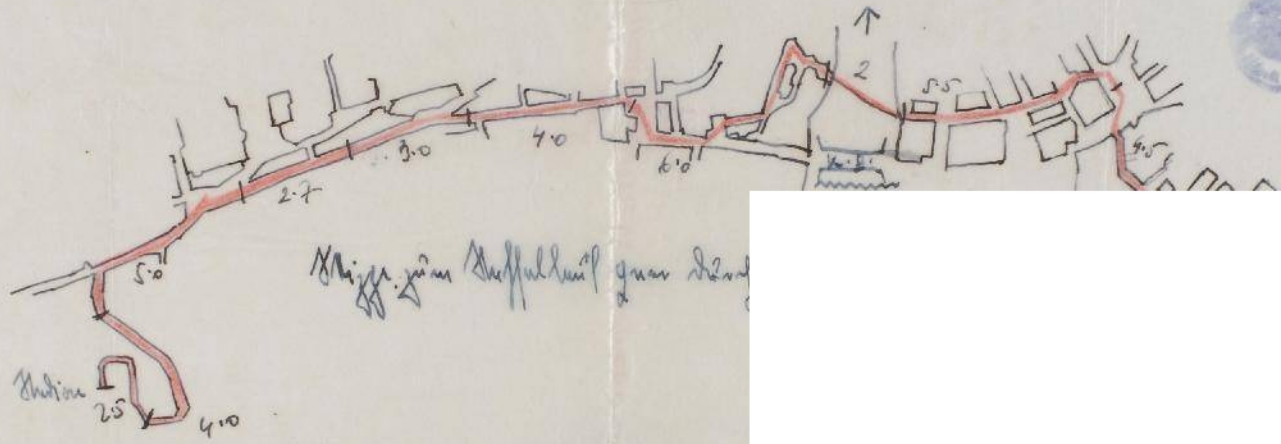 2
5.5
4.0
3.0
6.0
4.5
2.7
Skizze zum Staffellauf quer durch
5.0
Stadion
2.5
4.0